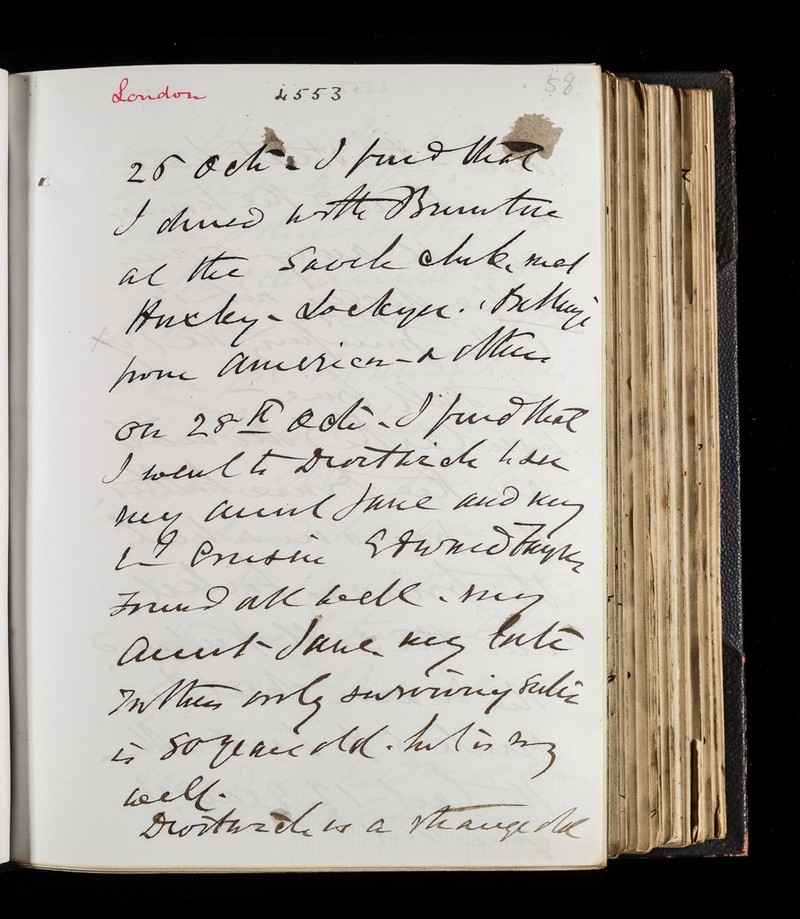 London 4553 58
25 Oct - I find that
I dined with Brunton
at the Savile club, met
Huxley - Lockyer.
from America - & others
on 28th Oct - I find that
I went to Droitwich & saw
my aunt Jane and my
Cousin Edward
Found all well - my
Aunt Jane my late
Fathers only surviving sister
is 80 years old - but is
well.
Droitwich is a strange old